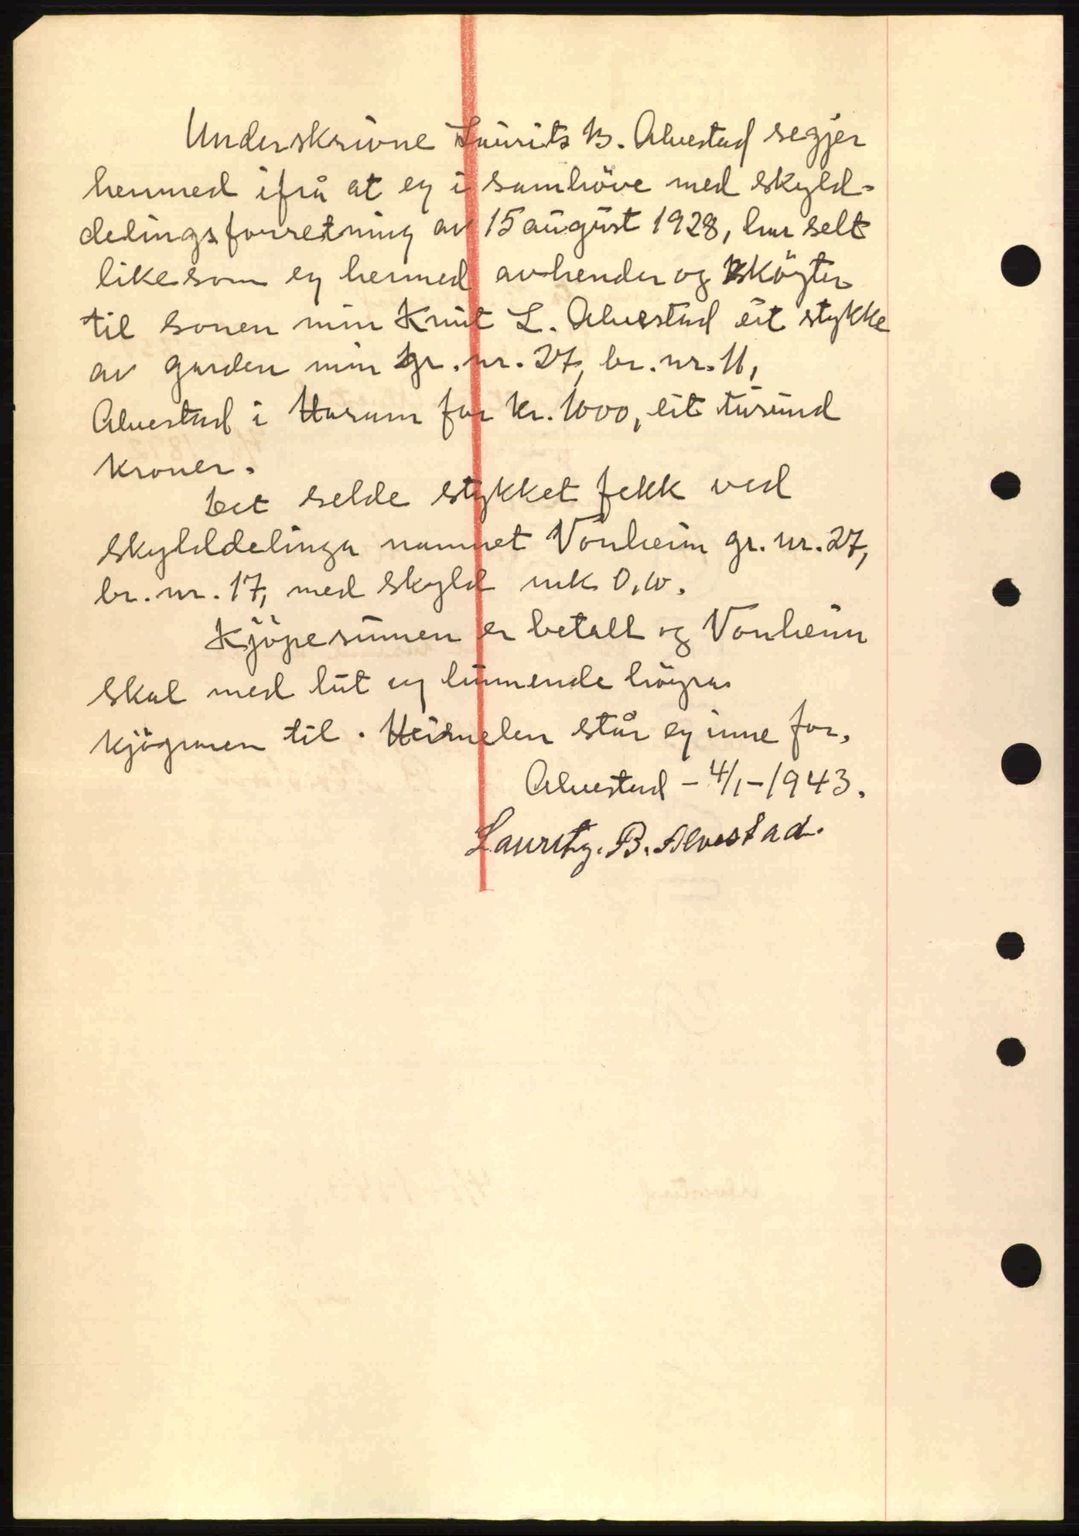 Underskrivne Laurits B. Alvestad segjer
hermed ifrå at eg i samhöve med skyld-
delingsforretning av 15 august 1928, har selt
likesom eg hermed avhender og skøyter
til sonen min Knut L. Alvestad eit stykke
av garden min gr. nr. 27, br. nr. 11,
Alvestad i Haram for kr. 1000, eit tusund
kroner.
Det selde stykket fekk ved
skylddelinga namnet Vonheim gr. nr. 27,
br. nr. 17, med skyld mk 0,10.
Kjöpesumen er betalt og Vonheim
skal med lut og lunnende höyra
kjöparen til. Heimelen står eg inne for.
Alvestad – 4/1 – 1943.
Lauritz. B. Alvestad.